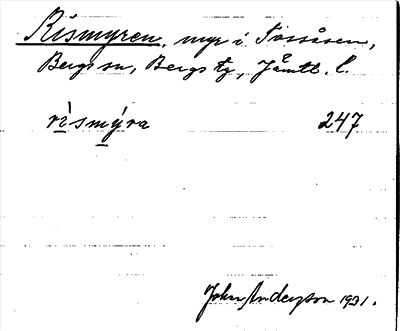 Rismyren, myr i Tossåsen,
Bergs sn, Bergs tg, Jämtl. l.
rìsmýra 247
John Anderson 1931.